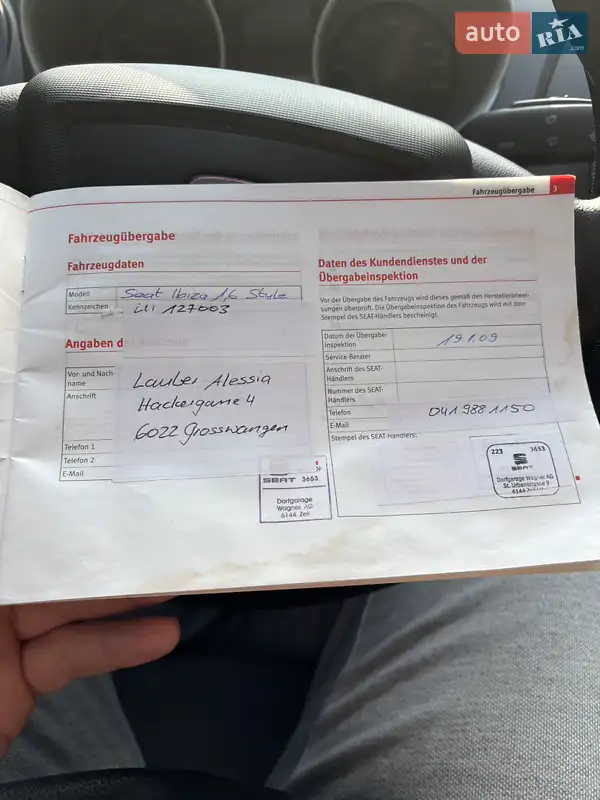 auto RIA .com
Fahrzeugübergabe 3
Fahrzeugübergabe
Fahrzeugdaten
Modell Seat Ibiza 1,6 Style
Kennzeichen LU 127003
Angaben
Vor- und Nach-
name
Lauber Alessia
Anschrift
6022 Grosswangen
Telefon 1
Telefon 2
E-Mail
SEAT 3653
Dorfgarage
Wagner AG
6144 Zell
Daten des Kundendienstes und der
Übergabeinspektion
Vor der Übergabe des Fahrzeugs wird dieses gemäß den Herstelleranwei-
sungen überprüft. Die Übergabeinspektion des Fahrzeugs wird mit dem
Stempel des SEAT-Händlers bescheinigt.
Datum der Übergabe-
inspektion
19.1.09
Service-Berater
Anschrift des SEAT-
Händlers
Nummer des SEAT-
Händlers
Telefon 041 988 11 50
E-Mail
Stempel des SEAT-Händlers:
223 3653
SEAT
Dorfgarage Wagner AG
St. Urbanstrasse 9
6144 Zell